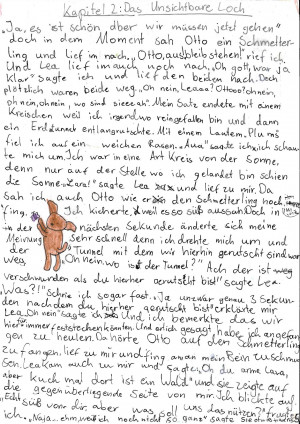 Kapitel 2: Das Unsichtbare Loch
„Ja, es ist schön aber wir müssen jetzt gehen"
doch in dem Moment sah Otto ein Schmetter-
ling und lief im nach. „Otto, aus, bleib stehen" rief ich.
Und Lea lief im auch noch nach. „Oh gott, war ja
klar" sagte ich und lief den beiden nach. Doch
plötzlich waren beide weg. „Oh nein, Leaaa? Ottooo? ohnein,
oh nein, ohnein, wo sind sie". Mein Satz endete mit einem
Kreischen weil ich irgendwo reingefallen bin und dann
ein Erdtunnel entlangrutschte. Mit einem Lauten Plumps
fiel ich auf ein weichen Rasen. „Aua" sagte ich, ich schau-
te mich um. Ich war in eine Art Kreis von der Sonne,
denn nur auf der Stelle wo ich gelandet bin schien
die Sonne. „Lara!" sagte Lea und lief zu mir. Da
sah ich auch Otto wie er den Schmetterling hoch
fing. Ich kicherte, weil es so süß aussah. Doch in
der nächsten Sekunde änderte sich meine
Meinung sehr schnell denn ich drehte mich um und
der Tunnel mit dem wir hierhin gerutscht sind war
weg. „Oh nein wo ist der Tunnel?" „Ach der ist
verschwunden als du hierher gerutscht bist" sagte Lea.
„Was?!" Schrie ich sogar fast. „Ja und zwar genau 3 Sekun-
den nachdem du hierher gerutscht bist" erklärte mir
Lea. „Oh nein" sagte ich und ich bemerkte das wir
hier für immer feststecken könnten. Und erlich gesagt, habe ich angefan-
gen zu heulen. Da hörte Otto auf den Schmetterling
zu fangen, lief zu mir und fing an an mein Bein zu schmu-
sen. Lea kam auch zu mir und sagte, „Oh du arme Lara,
aber kuch mal dort ist ein Wald" und sie zeigte auf
die gegenüberliegende Seite von mir. Ich blickte auf.
„Echt süß von dir aber was soll uns das nützen?" fragte
ich. „Naja... ehm, weiß ich noch nicht so ganz" sagte sie